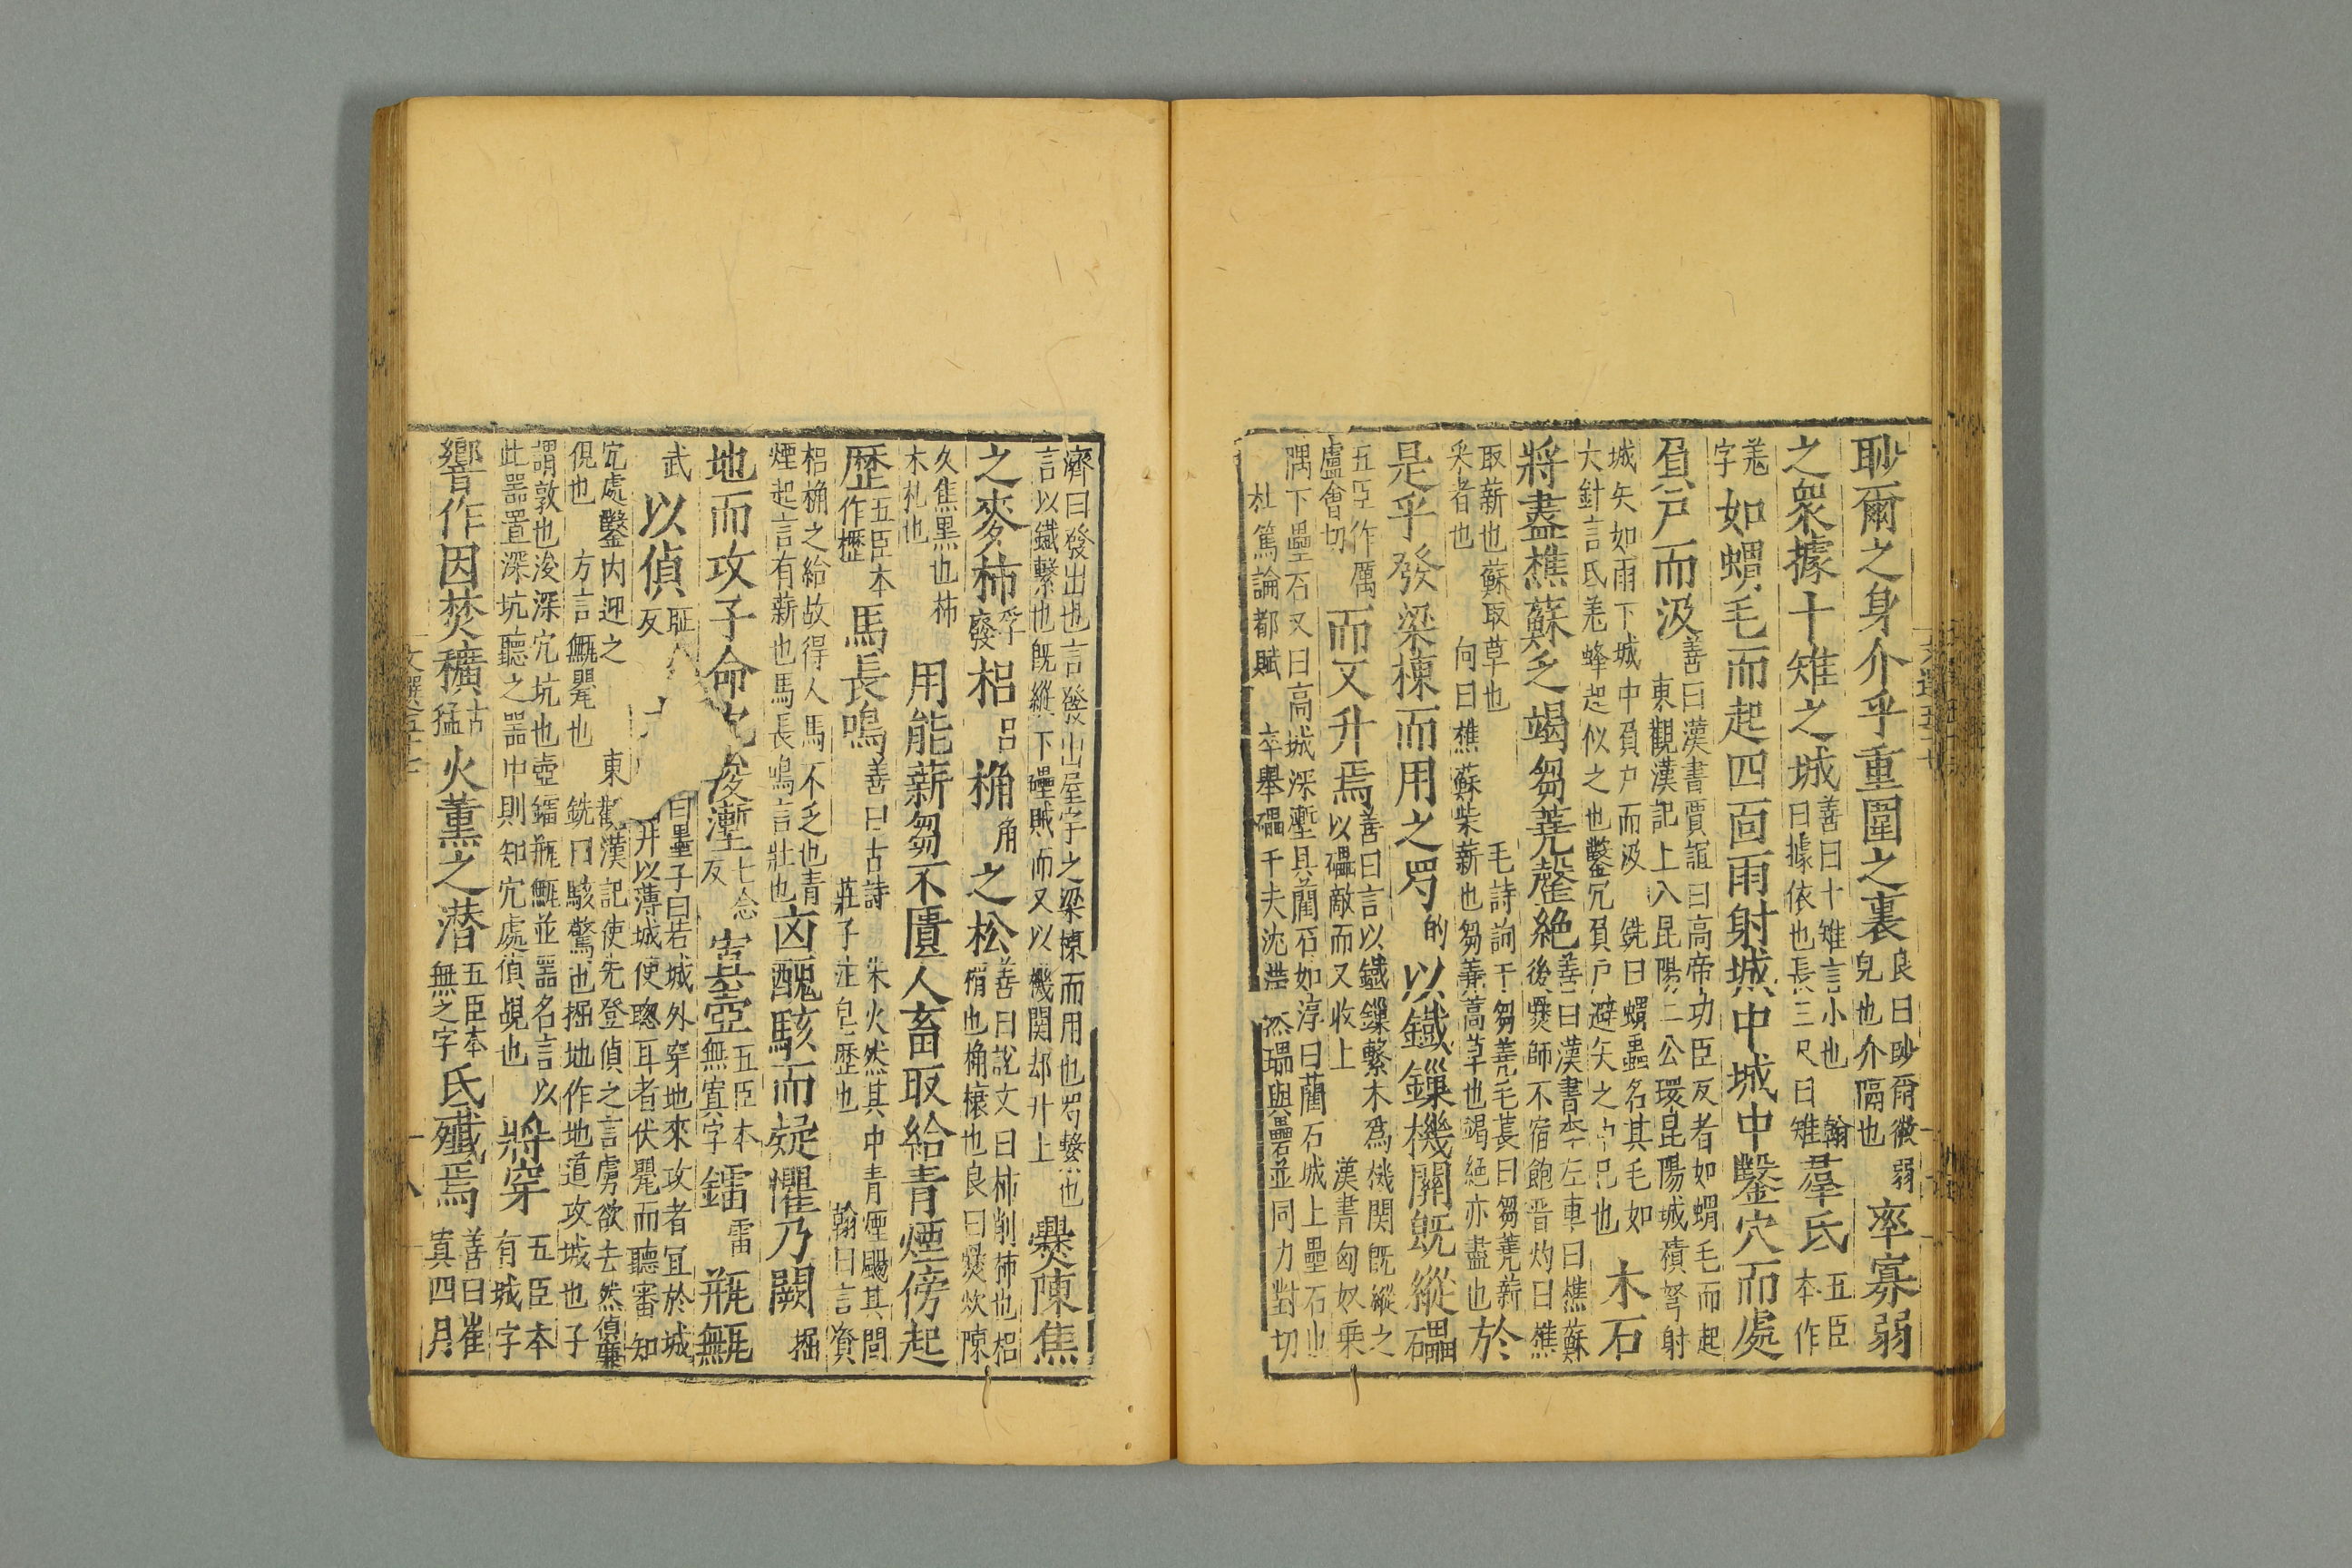 眇爾之身介乎重圍之裏良曰眇爾微弱皃也介隔也率寡弱
之衆據十雉之城善曰十雉言小也翰曰據依也長三尺曰雉羣氐五臣本作
羗字如蝟毛而起四面雨射城中城中鑿穴而處
負戸而汲善曰漢書賈誼曰高帝功臣反者如蝟毛而起東觀漢記上入昆陽二公環昆陽城積弩射
城矢如雨下城中負戸而汲銑曰蝟蟲名其毛如大針言氐羗蜂起似之也鑿冗負戸避矢之也木石
將盡樵蘇乏竭芻蕘罄絶善曰漢書李左車曰樵蘇後爨師不宿飽晋灼曰樵
取薪也蘇取草也毛詩詢于芻蕘毛萇曰芻蕘薪采者也向曰樵蘇柴薪也芻蕘蒿草也竭絶亦盡也於
是乎發梁棟而用之罥的以鐵鏁機關旣縱礧
五臣作厲盧會切而又升焉善曰言以鐵鏁繫木爲機関旣縱之以礧敵而又收上漢書匈奴乗
隅下壘石又曰高城深壍具藺石如淳曰藺石城上壘石也杜篤論都賦卒舉礧千夫沈滯礧與壘並同力對切
濟曰發出也言發出屋宇之梁棟而用也罥繫也言以鐵繫也旣縱下礧賊而又以機関却廾上爨陳焦
之麥柿孚廢梠吕桷角之松善曰說文曰柿削柿也梠梢也桷榱也良曰爨炊陳
久焦黒也柿木札也用能薪芻不匱人畜取給青煙傍起
歷五臣本作櫪馬長鳴善曰古詩朱火然其中青煙颺其間莊子注皁歷也翰曰言資
梠桷之給故得人馬不乏也青煙起言有薪也馬長鳴言壯也凶醜駭而疑懼乃闕掘
地而攻子命浚壍七念反寘壺五臣本無寘字鐳雷瓶甒
武以偵曰墨子曰若城外穿地來攻者宜於城井以薄城使聰耳者伏甖而聽審知
宂處鑿内迎之東觀漢記使先登偵之言虜欲去然偵俔也方言甒甖也銑曰駭驚也掘地作地道攻城也子
謂敦也浚深宂坑也壺鐳瓶甒並器名言以此器置深坑聽之器中則知宂處偵覘也將穿五臣本有城字
響作因焚穬古猛火薰之潜五臣本無之字氐殱焉善曰崔寔四月